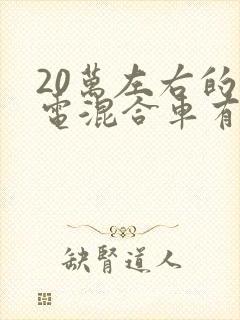 20萬左右的
電混合車有
缺腎道人